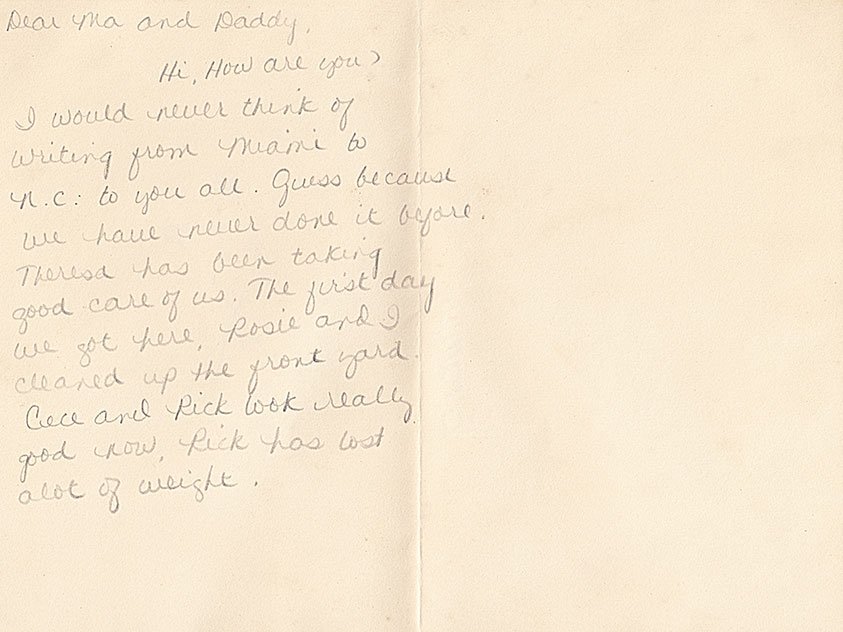 Dear Ma and Daddy,
Hi, How are you?
I would never think of
writing from Miami to
N.C: to you all. Guess because
we have never done it before.
Theresa has been taking
good care of us. The first day
we got here, Rosie and I
cleaned up the front yard.
Cece and Rick look really
good now, Rick has lost
alot of weight.